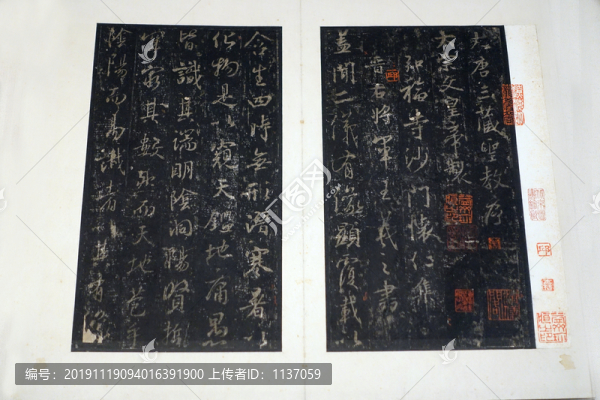 大唐三藏聖教序
太宗文皇帝製
弘福寺沙門懷仁集
晉右將軍王羲之書
蓋聞二儀有像顯覆載以
含生四時無形潛寒暑以
化物是以窺天鑑地庸愚
皆識其端明陰洞陽賢哲
罕窮其數然而天地苞乎
陰陽而易識者以其有像
编号：20191119094016391900 上传者ID：1137059